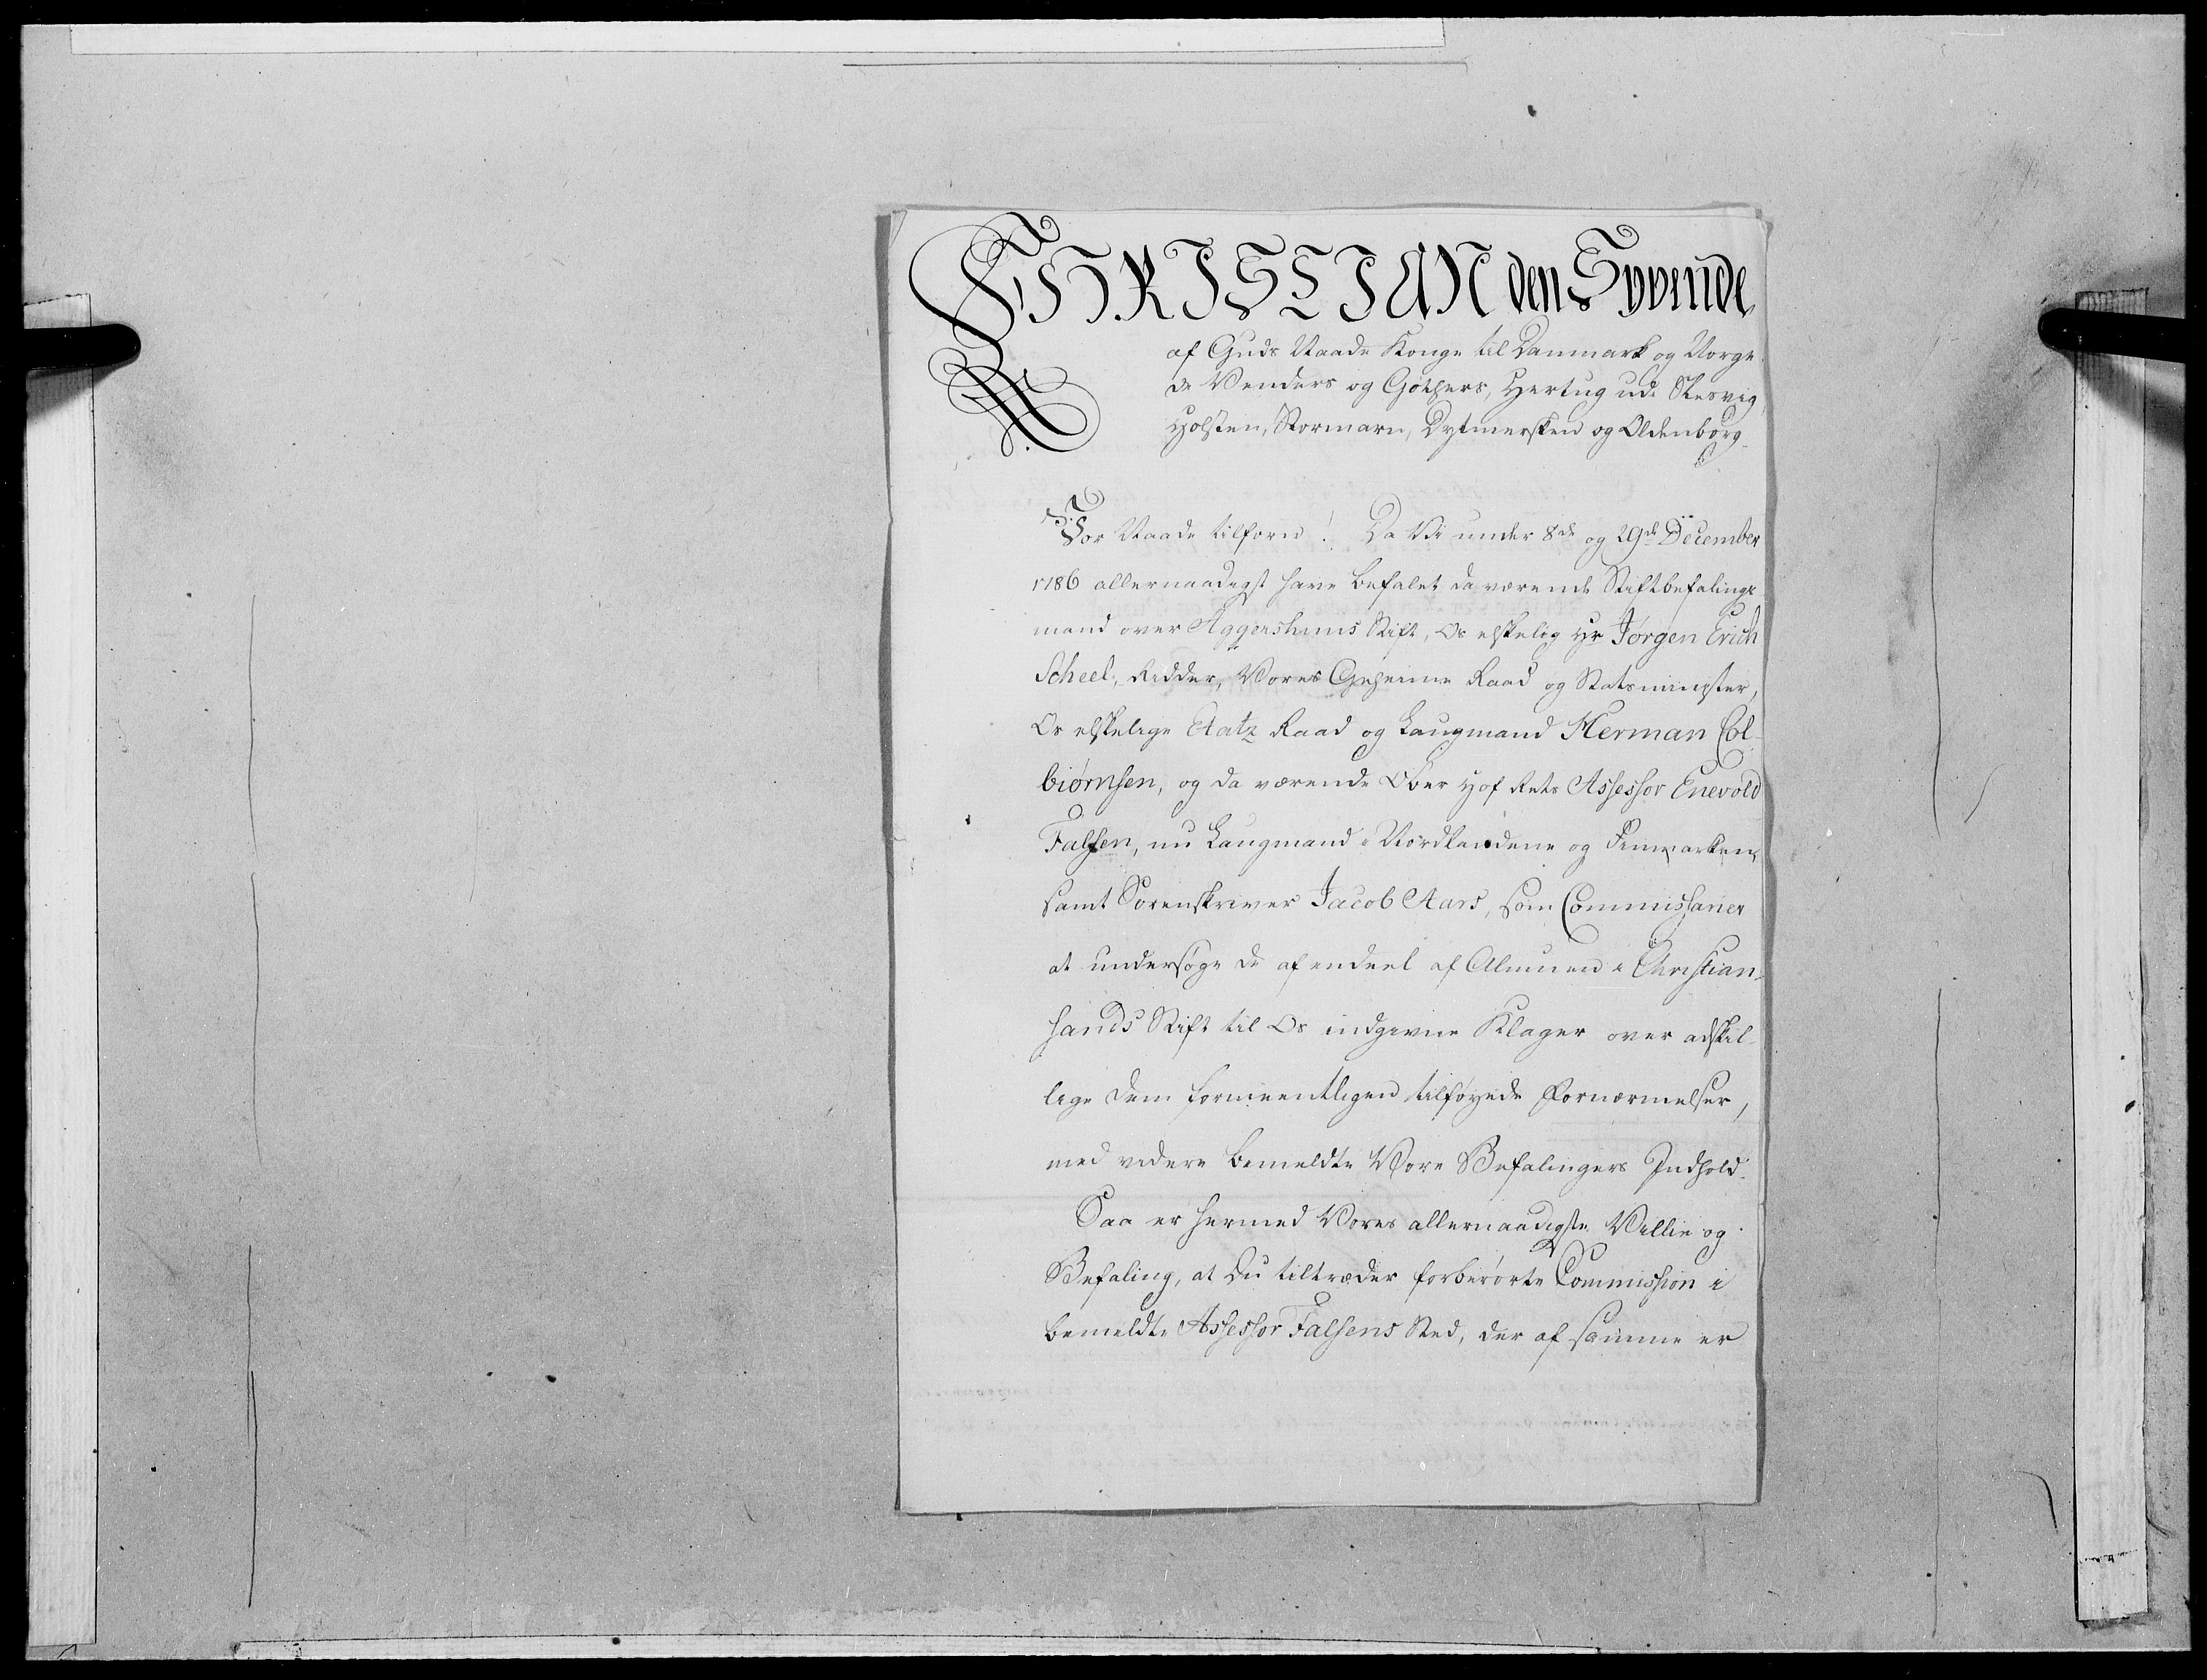 CHRISTIAN den Syvende
af Guds Naade Konge til Danmark og Norge,
de Venders og Gothers, Hertug udi Slesvig,
Holsten, Stormarn, Dytmersken og Oldenborg.
Vor Naade tilforn! Da Vi under 8de og 29de December
1786 allernaadigst have befalet daværende Stiftbefalings
mand over Aggershuus Stift, Os elskelig Hr Jørgen Erich
Scheel, Ridder, Vores Geheime Raad og Statsminister,
Os elskelige Etatz Raad og Laugmand Herman Col-
biørnsen, og da værende Ober Hof Rets Assessor Enevold
Falsen, nu Laugmand i Nordlandene og Finmarken,
samt Sorenskriver Jacob Aars, som Commissarier
at undersøge de af endeel af Almuen i Christian-
sands Stift til Os indgivne Klager over adskil-
lige dem formeentligen tilføyede Fornærmelser,
med videre bemeldte Vore Befalingers Indhold.
Saa er hermed Vores allernaadigste Villie og
Befaling, at Du tiltræder forberørte Commission i
bemeldte Assessor Falsens Sted, der af samme er